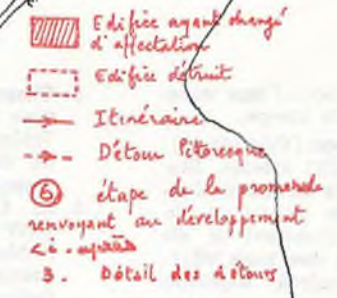 Edifice ayant changé
d'affectation
Edifice détruit
Itinéraire
Détour Pittoresque
6 étape de la promenade
renvoyant au développement
ci-après
3. Détail des détours